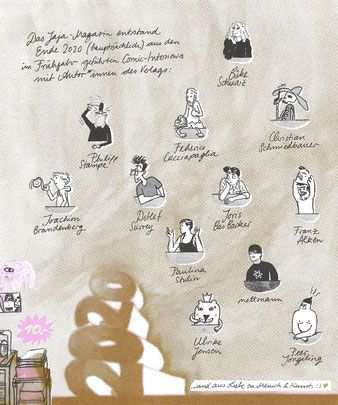 Das Jaja-Magazin entstand
Ende 2020 (hauptsächlich) aus den
im Frühjahr geführten Comic-Interviews
mit Autor*innen des Verlags:
Büke
Schwarz
Philipp
Stampe
Federico
Cacciapaglia
Christian
Schmiedbauer
Joachim
Brandenberg
Detlef
Surrey
Joris
Bas Backer
Franz
Alken
Paulina
Stulin
mettmann
Ulrike
Jensen
Peer
Jongeling
2020
10,-
...und aus Liebe zu Mensch & Kunst. :)